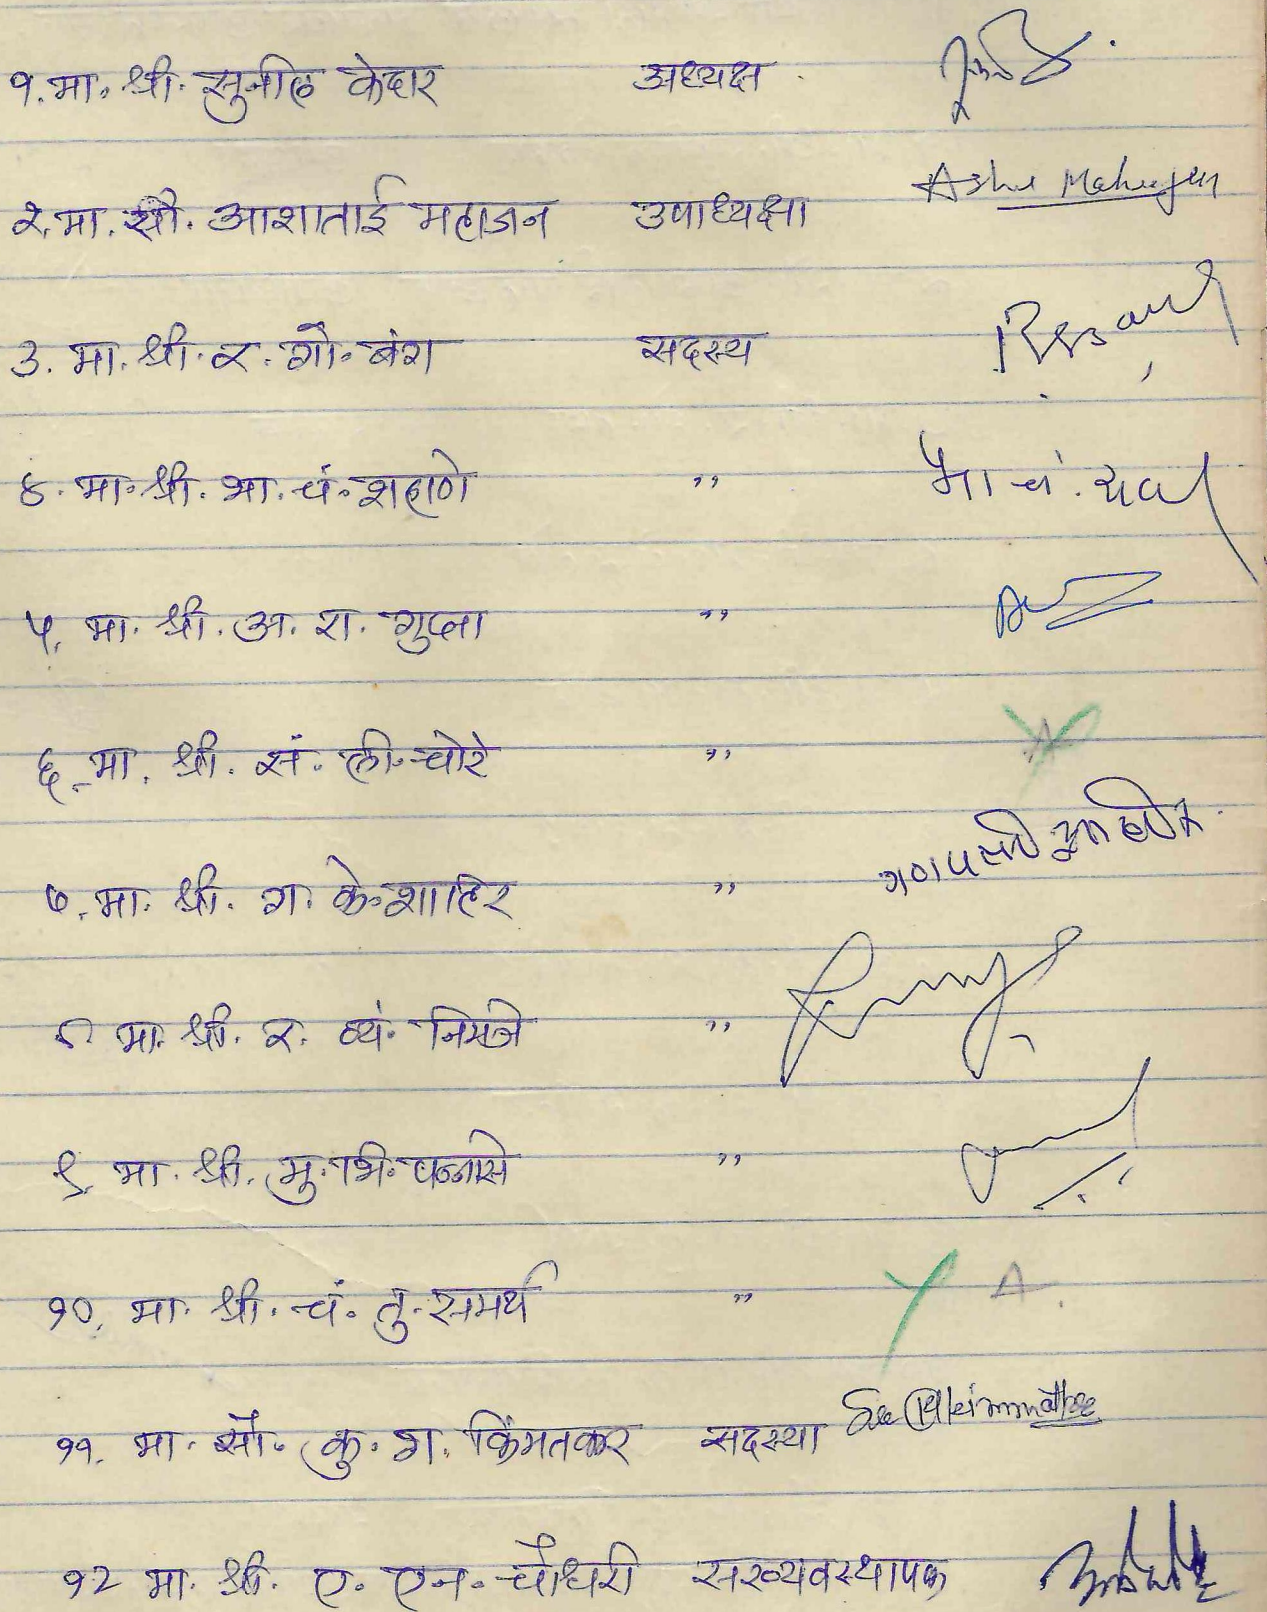 १. मा. श्री. सुनील केदार अध्यक्ष
२. मा. सौ. आशाताई महाजन उपाध्यक्षा Asha Mahajan
३. मा. श्री. र. गो. बंग सदस्य
४. मा. श्री. भा. चं. शहाणे ,, भा चं.
५. मा. श्री. अ. रा. गुप्ता ,,
६. मा. श्री. सं. ली. चोरे ,, A
७. मा. श्री. ग. के. शाहिर ,,
८ मा. श्री. र. व्यं. निमजे ,,
९. मा. श्री. मु. भि. पन्नासे ,,
१०. मा. श्री. चं. तु. समर्थ ,, A
११. मा. सौ. कु. ग. किंमतकर सदस्या
१२ मा. श्री. ए. एन. चौधरी सरव्यवस्थापक